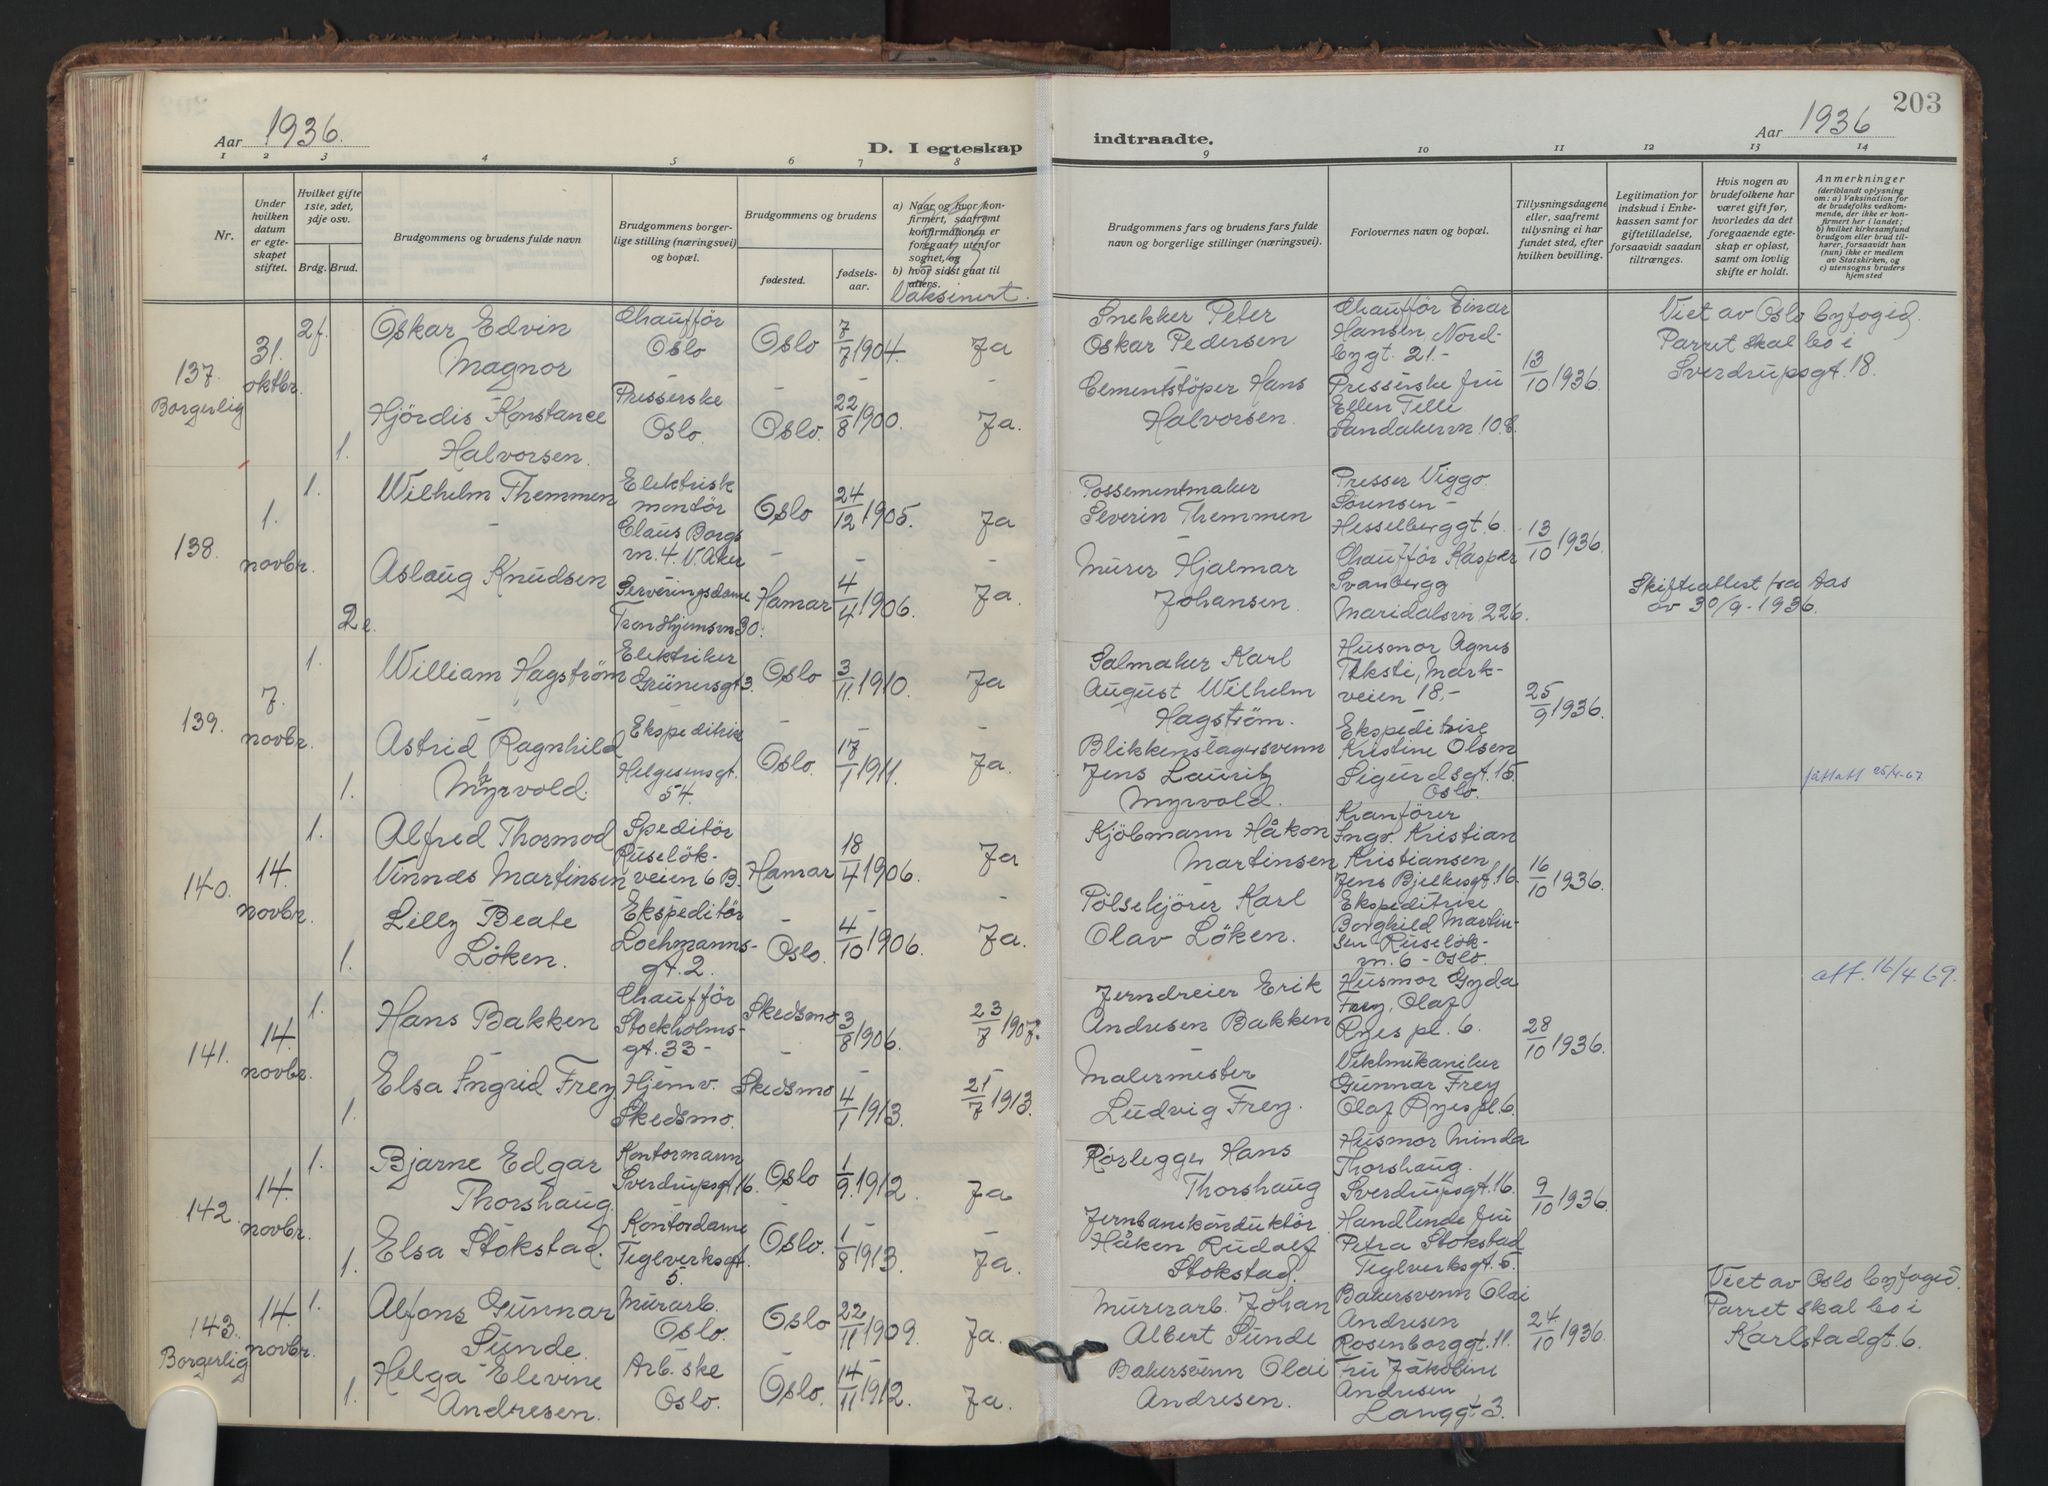 Aar 1936.
D. I egteskap
indtraadte.
Aar 1936
203
1 2 3 4 5 6 7 8 9 10 11 12 13 14
Nr.
Under hvilken datum er egteskapet stiftet.
Hvilket gifte 1ste, 2det, 3dje osv.
Brdg. Brud.
Brudgommens og brudens fulde navn
Brudgommens borgerlige stilling (næringsvei) og bopæl.
Brudgommens og brudens
fødested.
fødselsaar.
a) Naar og hvor konfirmert, saafremt konfirmationen er foregaat utenfor sognet, og
b) hvor sidst gaat til alters.
Vaksinert.
Brudgommens fars og brudens fars fulde navn og borgerlige stillinger (næringsvei).
Forlovernes navn og bopæl.
Tillysningsdagene eller, saafremt tillysning ei har fundet sted, efter hvilken bevilling.
Legitimation for indskud i Enkekassen samt for giftetilladelse, forsaavidt saadan tiltrænges.
Hvis nogen av brudefolkene har været gift før, hvorledes da det foregaaende egteskap er opløst, samt om lovlig skifte er holdt.
Anmerkninger
(deriblandt oplysning om: a) Vaksination for de brudefolks vedkommende, der ikke er konfirmert her i landet; b) hvilket kirkesamfund brudgom eller brud tilhører, forsaavidt han (hun) ikke er medlem av Statskirken, og c) utensogns bruders hjemsted
137. Borgerlig
31. oktbr.
2f.
Oskar Edvin Magnor
Chauffør Oslo
Oslo
7/7 1904.
Ja
Snekker Peter Oskar Pedersen
Chauffør Einar Hansen, Nordbygt. 21.-
13/10 1936.
Viet av Oslo byfogid.
Parret skal bo i
Sverdrupsgt. 18.
1.
Hjördis Konstance Halvorsen.
Presserske Oslo.
Oslo.
22/8 1900.
Ja.
Cementstöper Hans Halvorsen.
Presserske fru Ellen Telle Sandakervn. 10 B.
138.
1. novbr.
1.
Wilhelm Themmen
Elektrisk montör Claus Borgs v. 4. V. Aker
Oslo
24/12 1905.
Ja
Possementmaker Severin Themmen
Presser Viggo Sørensen - Hesselberggt. 6.
13/10 1936.
2 e.
Aslaug Knudsen
Serveringsdame Trondhjemsvn 30.
Hamar
4/4 1906.
Ja.
Murer Hjalmar Johansen.
Chauffør Kasper Svanbergg Maridalsvn. 226.
Skifteattest fra Aas
av 30/9-1936.
139.
7. novbr.
1.
William Hagström
Elektriker Grünersgt 3.
Oslo
3/11 1910.
Ja
Salmaker Karl August Wilhelm Hagström.
Husmor Agnes Teksti, Markveien 18.-
25/9 1936.
1.
Astrid Ragnhild Myrvold.
Ekspeditrise Helgesensgt. 54.
Oslo.
17/1 1911.
Ja.
Blikkenslagersvenn Jens Lauritz Myrvold.
Ekspeditrise Kristine Olsen Sigurdsgt. 15. Oslo.
140.
14. novbr.
1.
Alfred Thormod Vinnæs Martinsen
Speditör Ruselökveien 6 B.
Hamar
18/4 1906.
Ja
Kjöbmann Håkon Martinsen
Kranfører Ingv. Kristian Kristiansen Jens Bjelkesgt. 16.
16/10 1936.
1.
Lilly Beate Löken.
Ekspeditör Lochmannsgt. 2.
Oslo.
4/10 1906.
Ja.
Pölsekjörer Karl Olav Löken.
Ekspeditrise Borghild Martinsen Ruselökvn. 6 - Oslo.
141.
14. novbr.
1.
Hans Bakken
Chauffør Stockholmsgt. 33 -
Skedsmo
3/8 1906.
23/7 1907.
Jerndreier Erik Andresen Bakken
Husmor Gyda Frey, Olaf Ryes pl. 6.
28/10 1936.
att. 16/4 69.
1.
Elsa Ingrid Frey
Hjemv. Skedsmo.
Skedsmo
4/1 1913.
21/7 1913.
Malermester Ludvig Frey.
Vektmekaniker Gunnar Frey Olaf Ryes pl. 6.
142.
14. novbr.
1.
Bjarne Edgar Thorshaug
Kontormann Sverdrupsgt 16.
Oslo
1/9 1912.
Ja
Rørlegger Hans Thorshaug
Husmor Minda Thorshaug. Sverdrupsgt. 16.
9/10 1936.
1.
Elsa Stokstad.
Kontordame Teglverksgt. 5.
Oslo.
1/8 1913.
Ja.
Jernbanekonduktör Håken Rudolf Stokstad.
Handlende fru Petra Stokstad Teglverksgt. 5.
143. Borgerlig
14. novbr.
1.
Alfons Gunnar Sunde.
Murarb. Oslo.
Oslo
22/11 1909.
Ja.
Murerarb. Johan Albert Sunde
Bakersvenn Olai Andresen Rosenborggt. 11.
24/10 1936.
Viet av Oslo byfogid.
Parret skal bo i
Karlstadgt. 6.
1.
Helga Elevine Andresen.
Arb.ske Oslo.
Oslo.
14/11 1912.
Ja.
Bakersvenn Olai Andresen.
Fru Jakobine Andresen Langgt. 3.